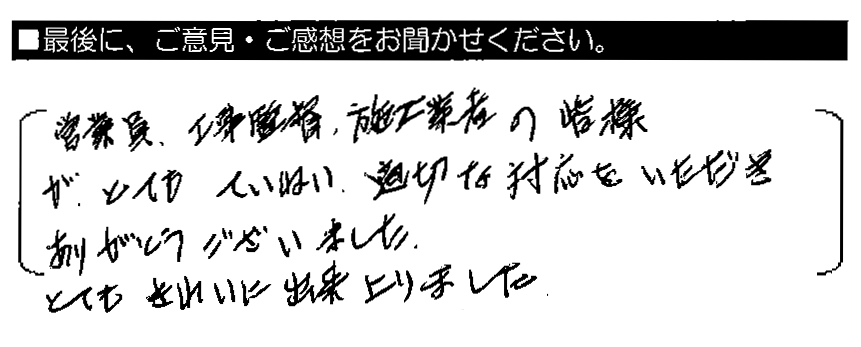 ■最後に、ご意見・ご感想をお聞かせください。
営業員、工事監督、施工業者の皆様
が、とても ていねい、適切な対応をいただき
ありがとうございました。
とてもきれいに出来上りました